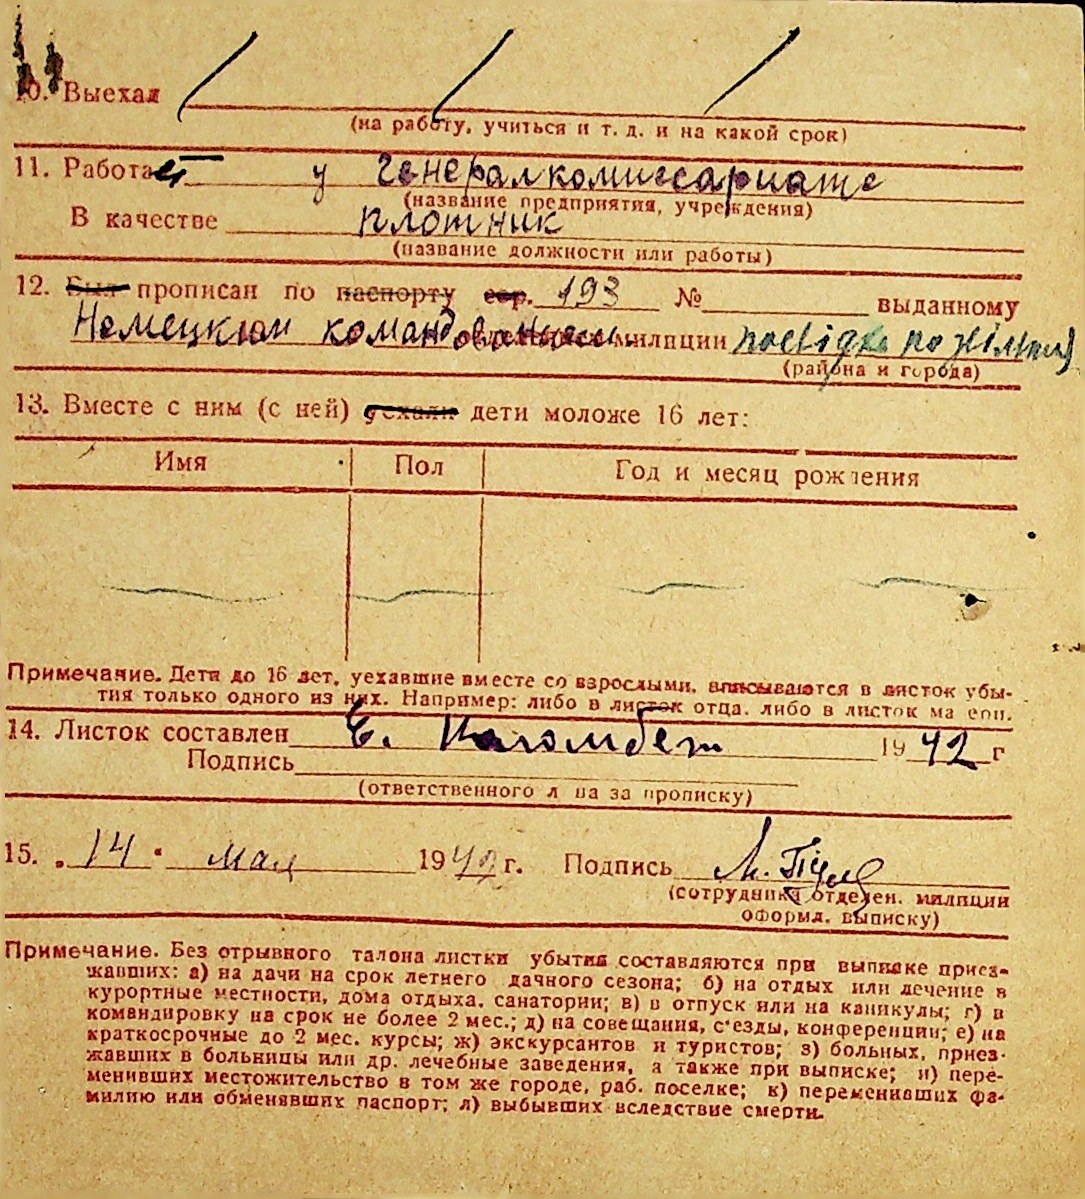 10. Выехал
(на работу, учиться и т. д. и на какой срок)
11. Работает у Генералкомиссариате
(название предприятия, учреждения)
В качестве плотник
(название должности или работы)
12. Был прописан по паспорту сер. 193 № выданному
Немецким командованием милиции посвідка по
(района и города)
13. Вместе с ним (с ней) уехали дети моложе 16 лет:
Имя Пол Год и месяц рождения
Примечание. Дети до 16 лет, уехавшие вместе со взрослыми, вписываются в листок убы-
тия только одного из них. Например: либо в листок отца, либо в листок матери.
14. Листок составлен Е. 1942 г
Подпись
(ответственного лица за прописку)
15. „14" мая 1942 г. Подпись
(сотрудника отделен. милиции
оформл. выписку)
Примечание. Без отрывного талона листки убытия составляются при выписке приез-
жавших: а) на дачи на срок летнего дачного сезона; б) на отдых или лечение в
курортные местности, дома отдыха, санатории; в) в отпуск или на каникулы; г) в
командировку на срок не более 2 мес.; д) на совещания, с'езды, конференции; е) на
краткосрочные до 2 мес. курсы; ж) экскурсантов и туристов; з) больных, приез-
жавших в больницы или др. лечебные заведения, а также при выписке; и) пере-
менивших местожительство в том же городе, раб. поселке; к) переменивших фа-
милию или обменявших паспорт; л) выбывших вследствие смерти.